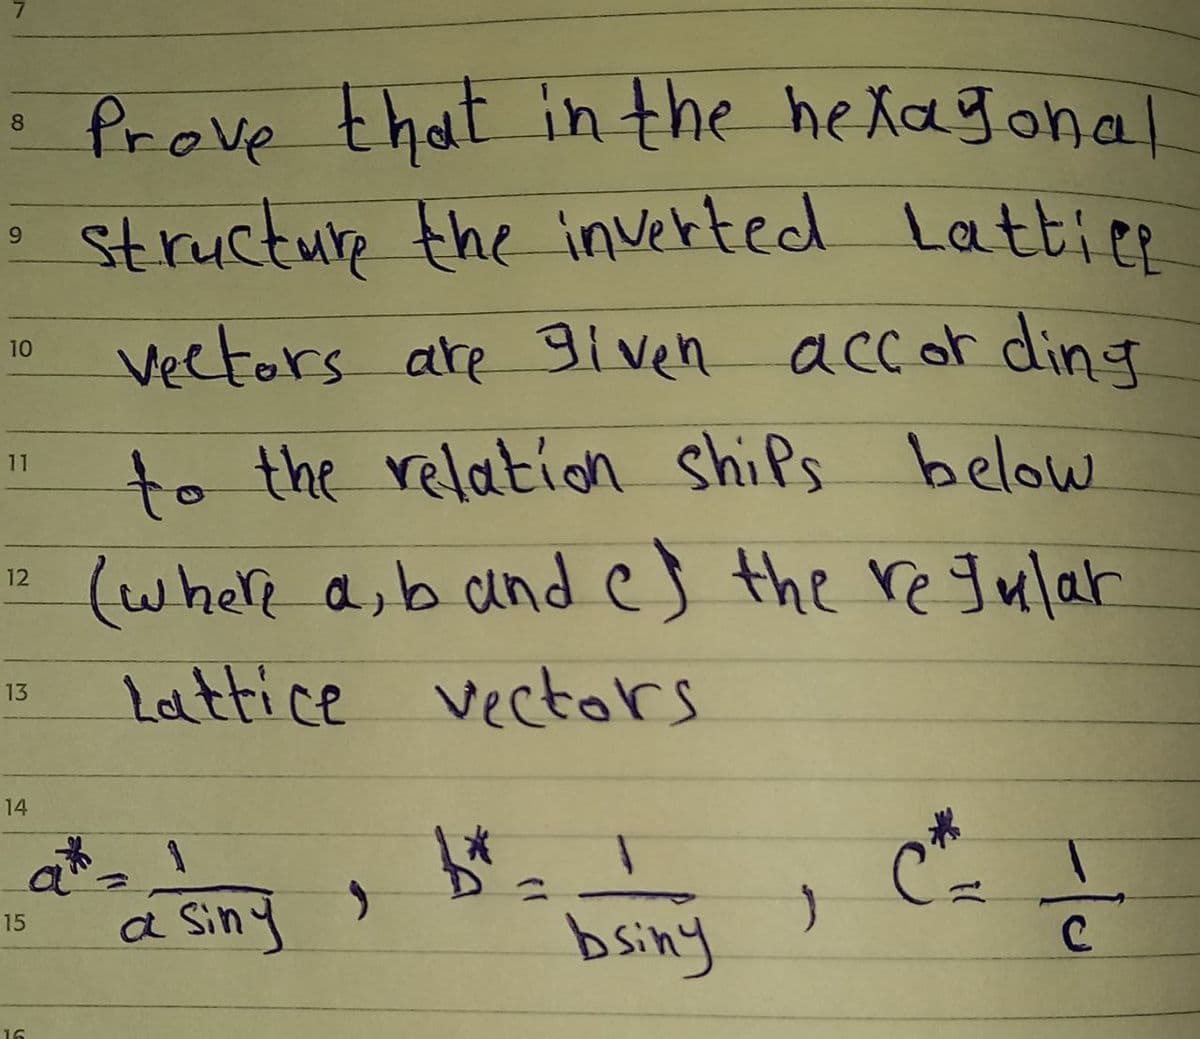 7
8 Prove that in the hexagonal
9 structure the inverted Lattice
10 vectors are given according
11 to the relation ships below
12 (where a, b and c) the regular
13 Lattice vectors
14
a* = 1 / a siny , b* = 1 / bsiny , C* = 1 / C
15
16